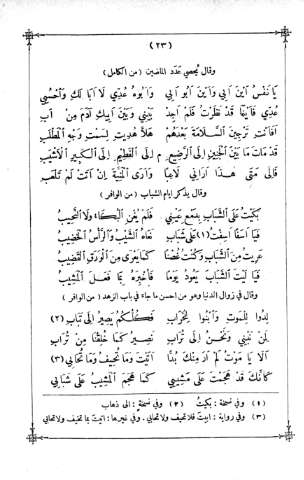 (٢٣)
وقال يحصي عدد الماضين (من الكامل)
يا نفس اين ابي واين ابو ابي وابوه عدي لا ابا لك واحسبي
عدي فاني قد نظرت فلم اجد بيني وبين ابيك آدم من اب
افانت ترجين السلامة بعدهم هلا هديت لسمت وجه المطلب
قد مات ما بين الجنين الى الرضيع م الى الفطيم الى الكبير الاشيب
فالى متى هذا اراني لاعبا وارى المنية ان اتت لم تلعب
وقال يذكر ايام الشباب (من الوافر)
بكيت على الشباب بدمع عيني فلم يغن البكاء ولا النحيب
فيا اسفا اسفت (١) على شباب نعاه الشيب والرأس الخضيب
عريت من الشباب وكنت غصنا كما يعرى من الورق القضيب
فيا ليت الشباب يعود يوما فاخبره بما فعل المشيب
وقال في زوال الدنيا وهو من احسن ما جاء في باب الزهد (من الوافر)
لدوا للموت وابنوا للخراب فكلكم يصير الى تباب (٢)
لمن نبني ونحن الى تراب نصير كما خلقنا من تراب
الا يا موت لم ار منك بدا اتيت وما تحيف وما تحابي (٣)
كانك قد هجمت على مشيبي كما هجم المشيب على شبابي
(١) وفي نسخة: بكيت (٢) وفي نسخة: الى ذهاب
(٣) وفي رواية: ابيت فلا تحيف ولا تحابي. وفي غيرها: اتيت بما تحيف ولا تحابي